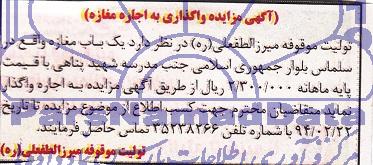 (آگهی مزایده واگذاری به اجاره مغازه)
تولیت موقوفه میرزالطفعلی(ره) در نظر دارد یک باب مغازه واقع در
سلماس بلوار جمهوری اسلامی جنب مدرسه شهید پناهی با قیمت
پایه ماهانه ۲/۳۰۰/۰۰۰ ریال از طریق آگهی مزایده به اجاره واگذار
نماید متقاضیان محترم جهت کسب اطلاع از موضوع مزایده تا تاریخ
۹۴/۰۲/۲۲ با شماره تلفن ۳۵۲۳۸۲۶۶ تماس حاصل فرمایند.
تولیت موقوفه میرزالطفعلی(ره)